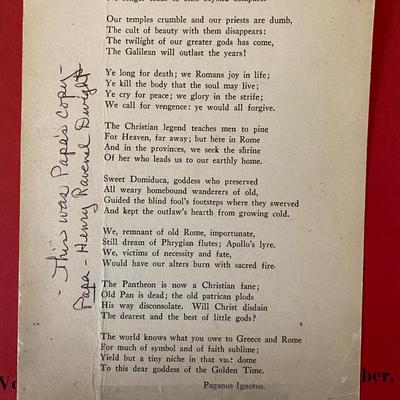 Our temples crumble and our priests are dumb,
The cult of beauty with them disappears:
The twilight of our greater gods has come,
The Galilean will outlast the years!
Ye long for death; we Romans joy in life;
Ye kill the body that the soul may live;
Ye cry for peace; we glory in the strife;
We call for vengence: ye would all forgive.
The Christian legend teaches men to pine
For Heaven, far away; but here in Rome
And in the provinces, we seek the shrine
Of her who leads us to our earthly home.
Sweet Domiduca, goddess who preserved
All weary homebound wanderers of old,
Guided the blind fool's footsteps where they swerved
And kept the outlaw's hearth from growing cold.
We, remnant of old Rome, importunate,
Still dream of Phrygian flutes; Apollo's lyre.
We, victims of necessity and fate,
Would have our alters burn with sacred fire.
The Pantheon is now a Christian fane;
Old Pan is dead; the old patrician plods
His way disconsolate. Will Christ disdain
The dearest and the best of little gods?
The world knows what you owe to Greece and Rome
For much of symbol and of faith sublime;
Yield but a tiny niche in that vast dome
To this dear goddess of the Golden Time.
Paganus Ignotus.
- This was Papa's copy -
Papa - Henry Ravenel Dwight
ber.